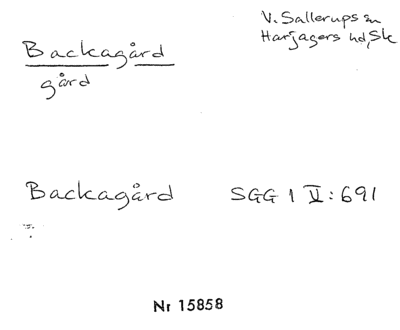 V. Sallerups sn
Harjagers hd, Sk
Backagård
gård
Backagård SGG 1 V:691
Nr 15858